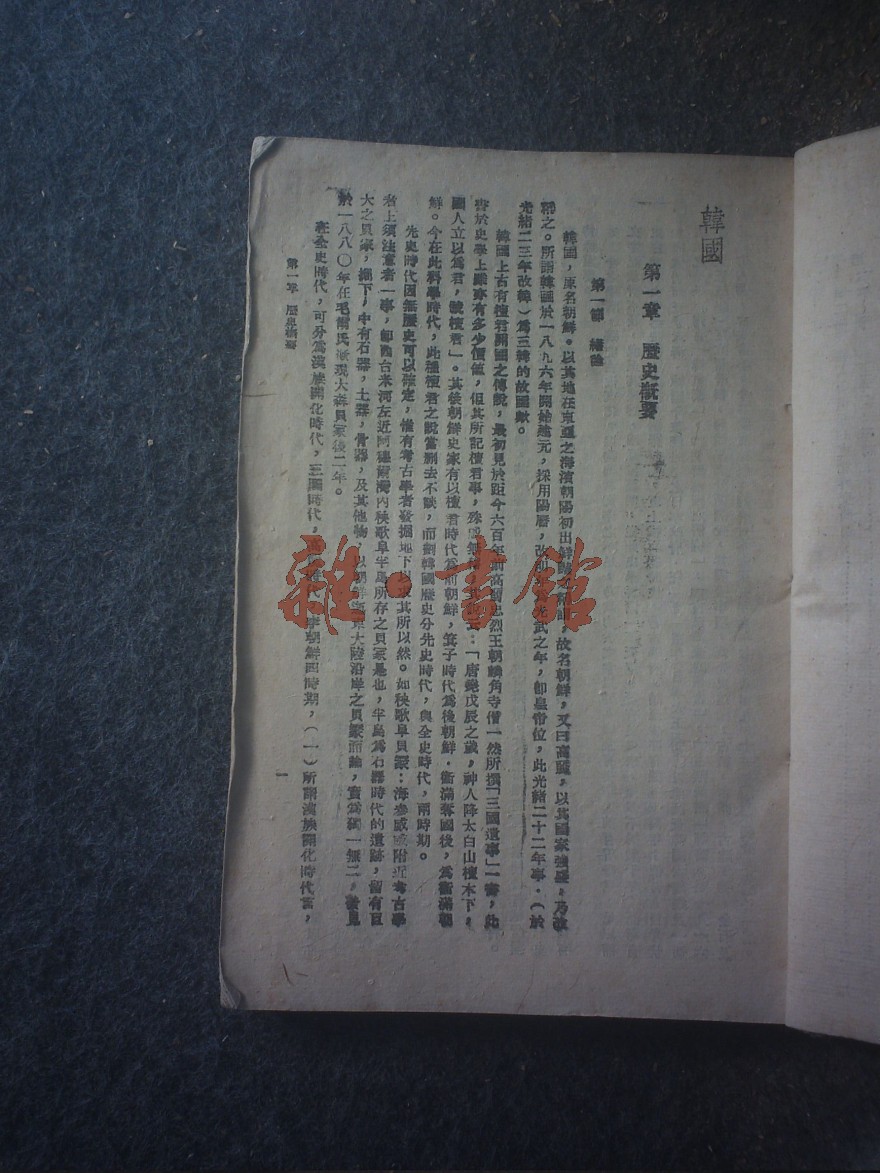 韓國
第一章 歷史概要
第一部 緒論
韓國，原名朝鮮。以其地在東亞之海濱朝陽初出鮮 故名朝鮮，又曰高麗，以其國家強盛，乃故
稱之。所謂韓國於一八九六年開始建元，採用陽曆，改 武之年，卽皇帝位，此光緒二十二年事．（於
光緒二三年改韓）爲三韓的故國歟。
韓國上古有檀君開國之傳說，最初見於距今六百年前高麗忠烈王朝麟角寺僧一然所撰「三國遺事」一書，此
書於史學上雖亦有多少價値，但其所記檀君事，殊 無 「唐堯戊辰之歲，神人降太白山檀木下，
國人立以爲君，號檀君」。其後朝鮮史家有以檀君時代爲前朝鮮，箕子時代爲後朝鮮．衞滿奪國後，爲衞滿朝
鮮。今在此科學時代，此種檀君之說當删去不談，而劃韓國歷史分先史時代，與全史時代，兩時期。
先史時代因無歷史可以確定，惟有考古學者發掘地下以求其所以然。如秧歌阜貝塚：海參威 附近考古學
者上須注意者一事，卽西台米河左近阿 爾灣內秧歌阜半島所存之貝冢是也，半島爲石器時代的遺跡，留有巨
大之貝冢，掘下，中有石器，土器，骨器，及其他物，以朝鮮 大陸沿岸之貝 而論，實爲獨一無二，發見
於一八八〇年在毛爾氏發現大森貝冢後二年。
在全史時代，可分爲漢族開化時代，三國時代，高 時代 李朝鮮四時期，（一）所謂漢族開化時代者，
第一章 歷史概要
一
雜·書館